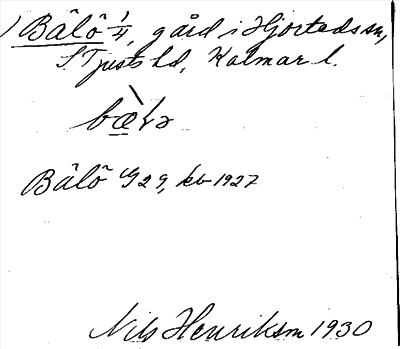 1) Bâlô 1/4, gård i Hjorteds sn,
S Tjusts hd, Kalmar l.
bæ̀lə
Bâlô G 29, kb 1927
Nils Henriksson 1930